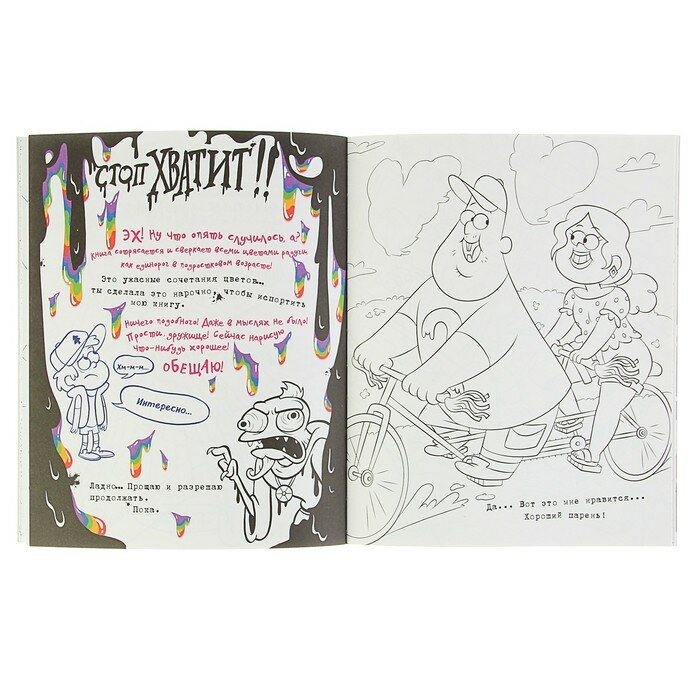 СТОП ХВАТИТ!!
ЭХ! Ну что опять случилось, а?
Книга сотрясается и сверкает всеми цветами радуги,
как единорог в подростковом возрасте!
Это ужасные сочетания цветов...
ты сделала это нарочно, чтобы испортить
мою книгу.
Ничего подобного! Даже в мыслях не было!
Прости, дружище! Сейчас нарисую
что-нибудь хорошее!
ОБЕЩАЮ!
Хм-м-м...
Интересно...
Ладно... Прощаю и разрешаю
продолжать.
Пока.
Да... Вот это мне нравится...
Хороший парень!